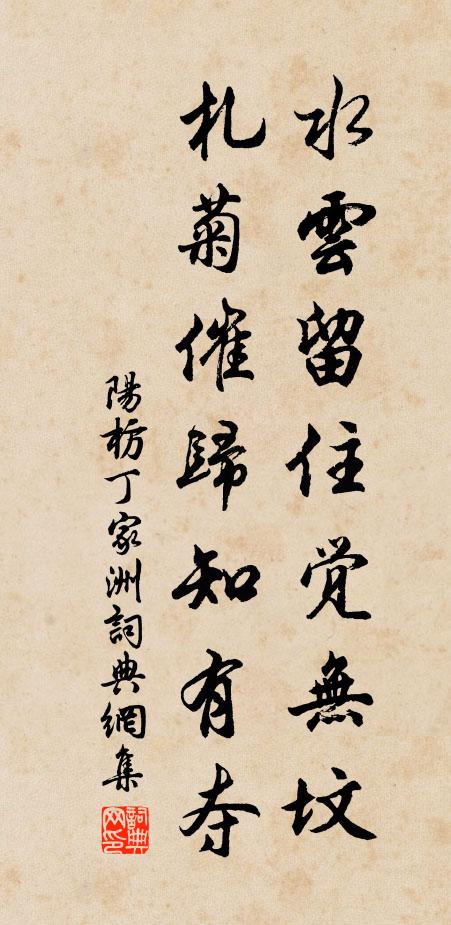 水雲留住覚無坟
札菊催歸知有夲
陽枋丁家洲詞典網集
詞典网印